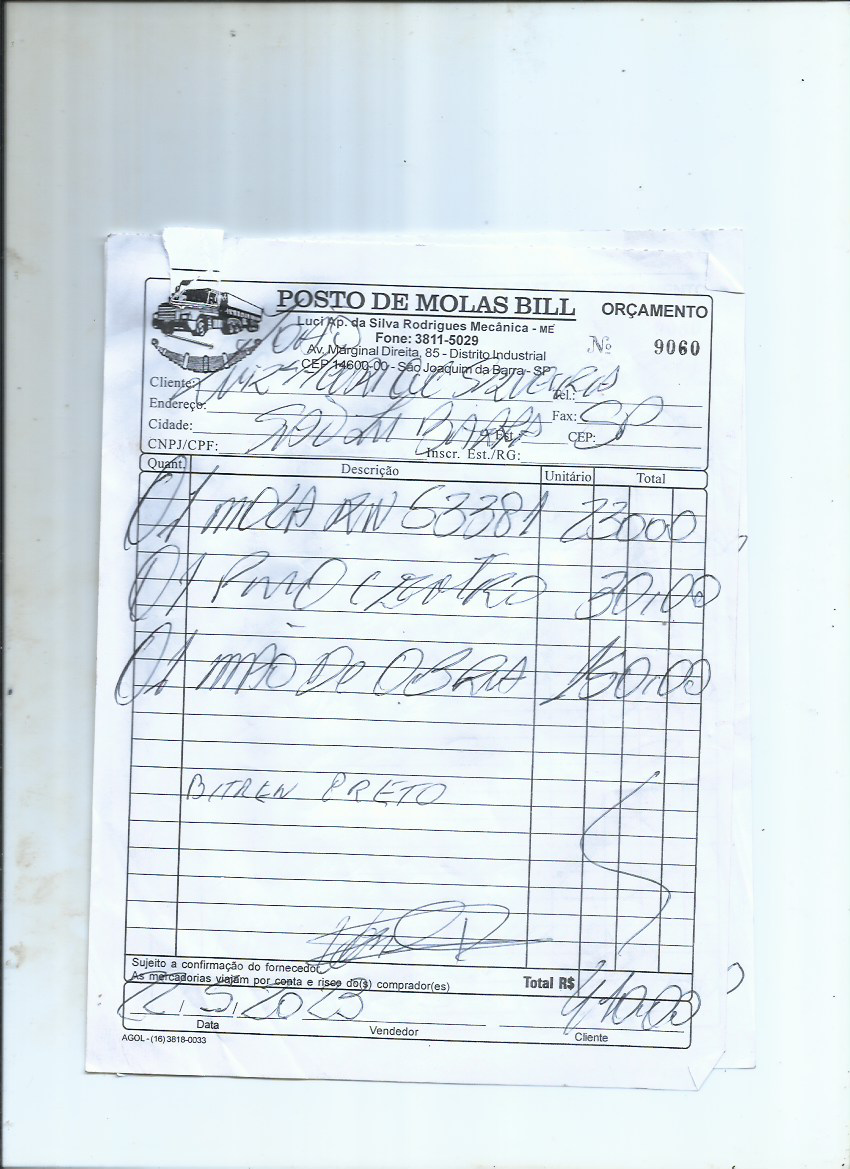 POSTO DE MOLAS BILL
ORÇAMENTO
Luci Ap. da Silva Rodrigues Mecânica - ME
Fone: 3811-5029
Nº 9060
Av. Marginal Direita, 85 - Distrito Industrial
CEP 14600-00 - São Joaquim da Barra - SP
João
Cliente: Silveira Tel.:
Endereço: Fax:
Cidade: São J Barra Est.: CEP: SP
CNPJ/CPF: Inscr. Est./RG:
Quant. Descrição Unitário Total
01 MOLA RN 53381 230 00
01 PINO CENTRO 30,00
01 MÃO De OBRA 150,00
BITREN PRETO
Sujeito a confirmação do fornecedor
As mercadorias viajam por conta e risco do(s) comprador(es)
Total R$ 410,00
22, 5, 2023
Data Vendedor Cliente
AGOL - (16) 3818-0033